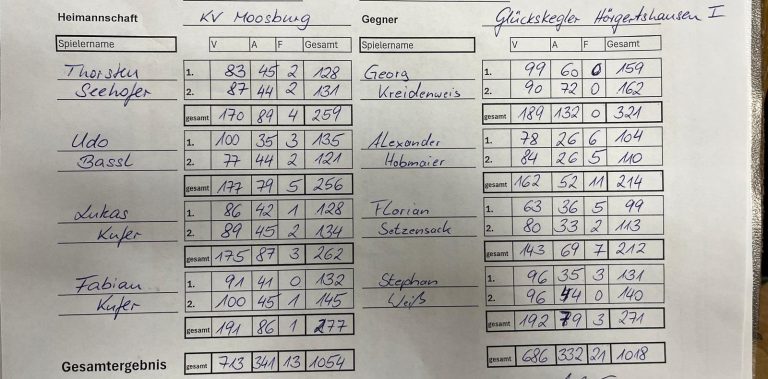 Heimannschaft KV Moosburg Gegner Glückskegler Hörgertshausen I
Spielername V A F Gesamt Spielername V A F Gesamt
Thorsten 1. 83 45 2 128 Georg 1. 99 60 0 159
Seehofer 2. 87 44 2 131 Kreidenweis 2. 90 72 0 162
gesamt 170 89 4 259 gesamt 189 132 0 321
Udo 1. 100 35 3 135 Alexander 1. 78 26 6 104
Bassl 2. 77 44 2 121 Hobmaier 2. 84 26 5 110
gesamt 177 79 5 256 gesamt 162 52 11 214
Lukas 1. 86 42 1 128 Florian 1. 63 36 5 99
Kufer 2. 89 45 2 134 Setzensack 2. 80 33 2 113
gesamt 175 87 3 262 gesamt 143 69 7 212
Fabian 1. 91 41 0 132 Stephan 1. 96 35 3 131
Kufer 2. 100 45 1 145 Weiß 2. 96 44 0 140
gesamt 191 86 1 277 gesamt 192 79 3 271
Gesamtergebnis gesamt 713 341 13 1054 gesamt 686 332 21 1018